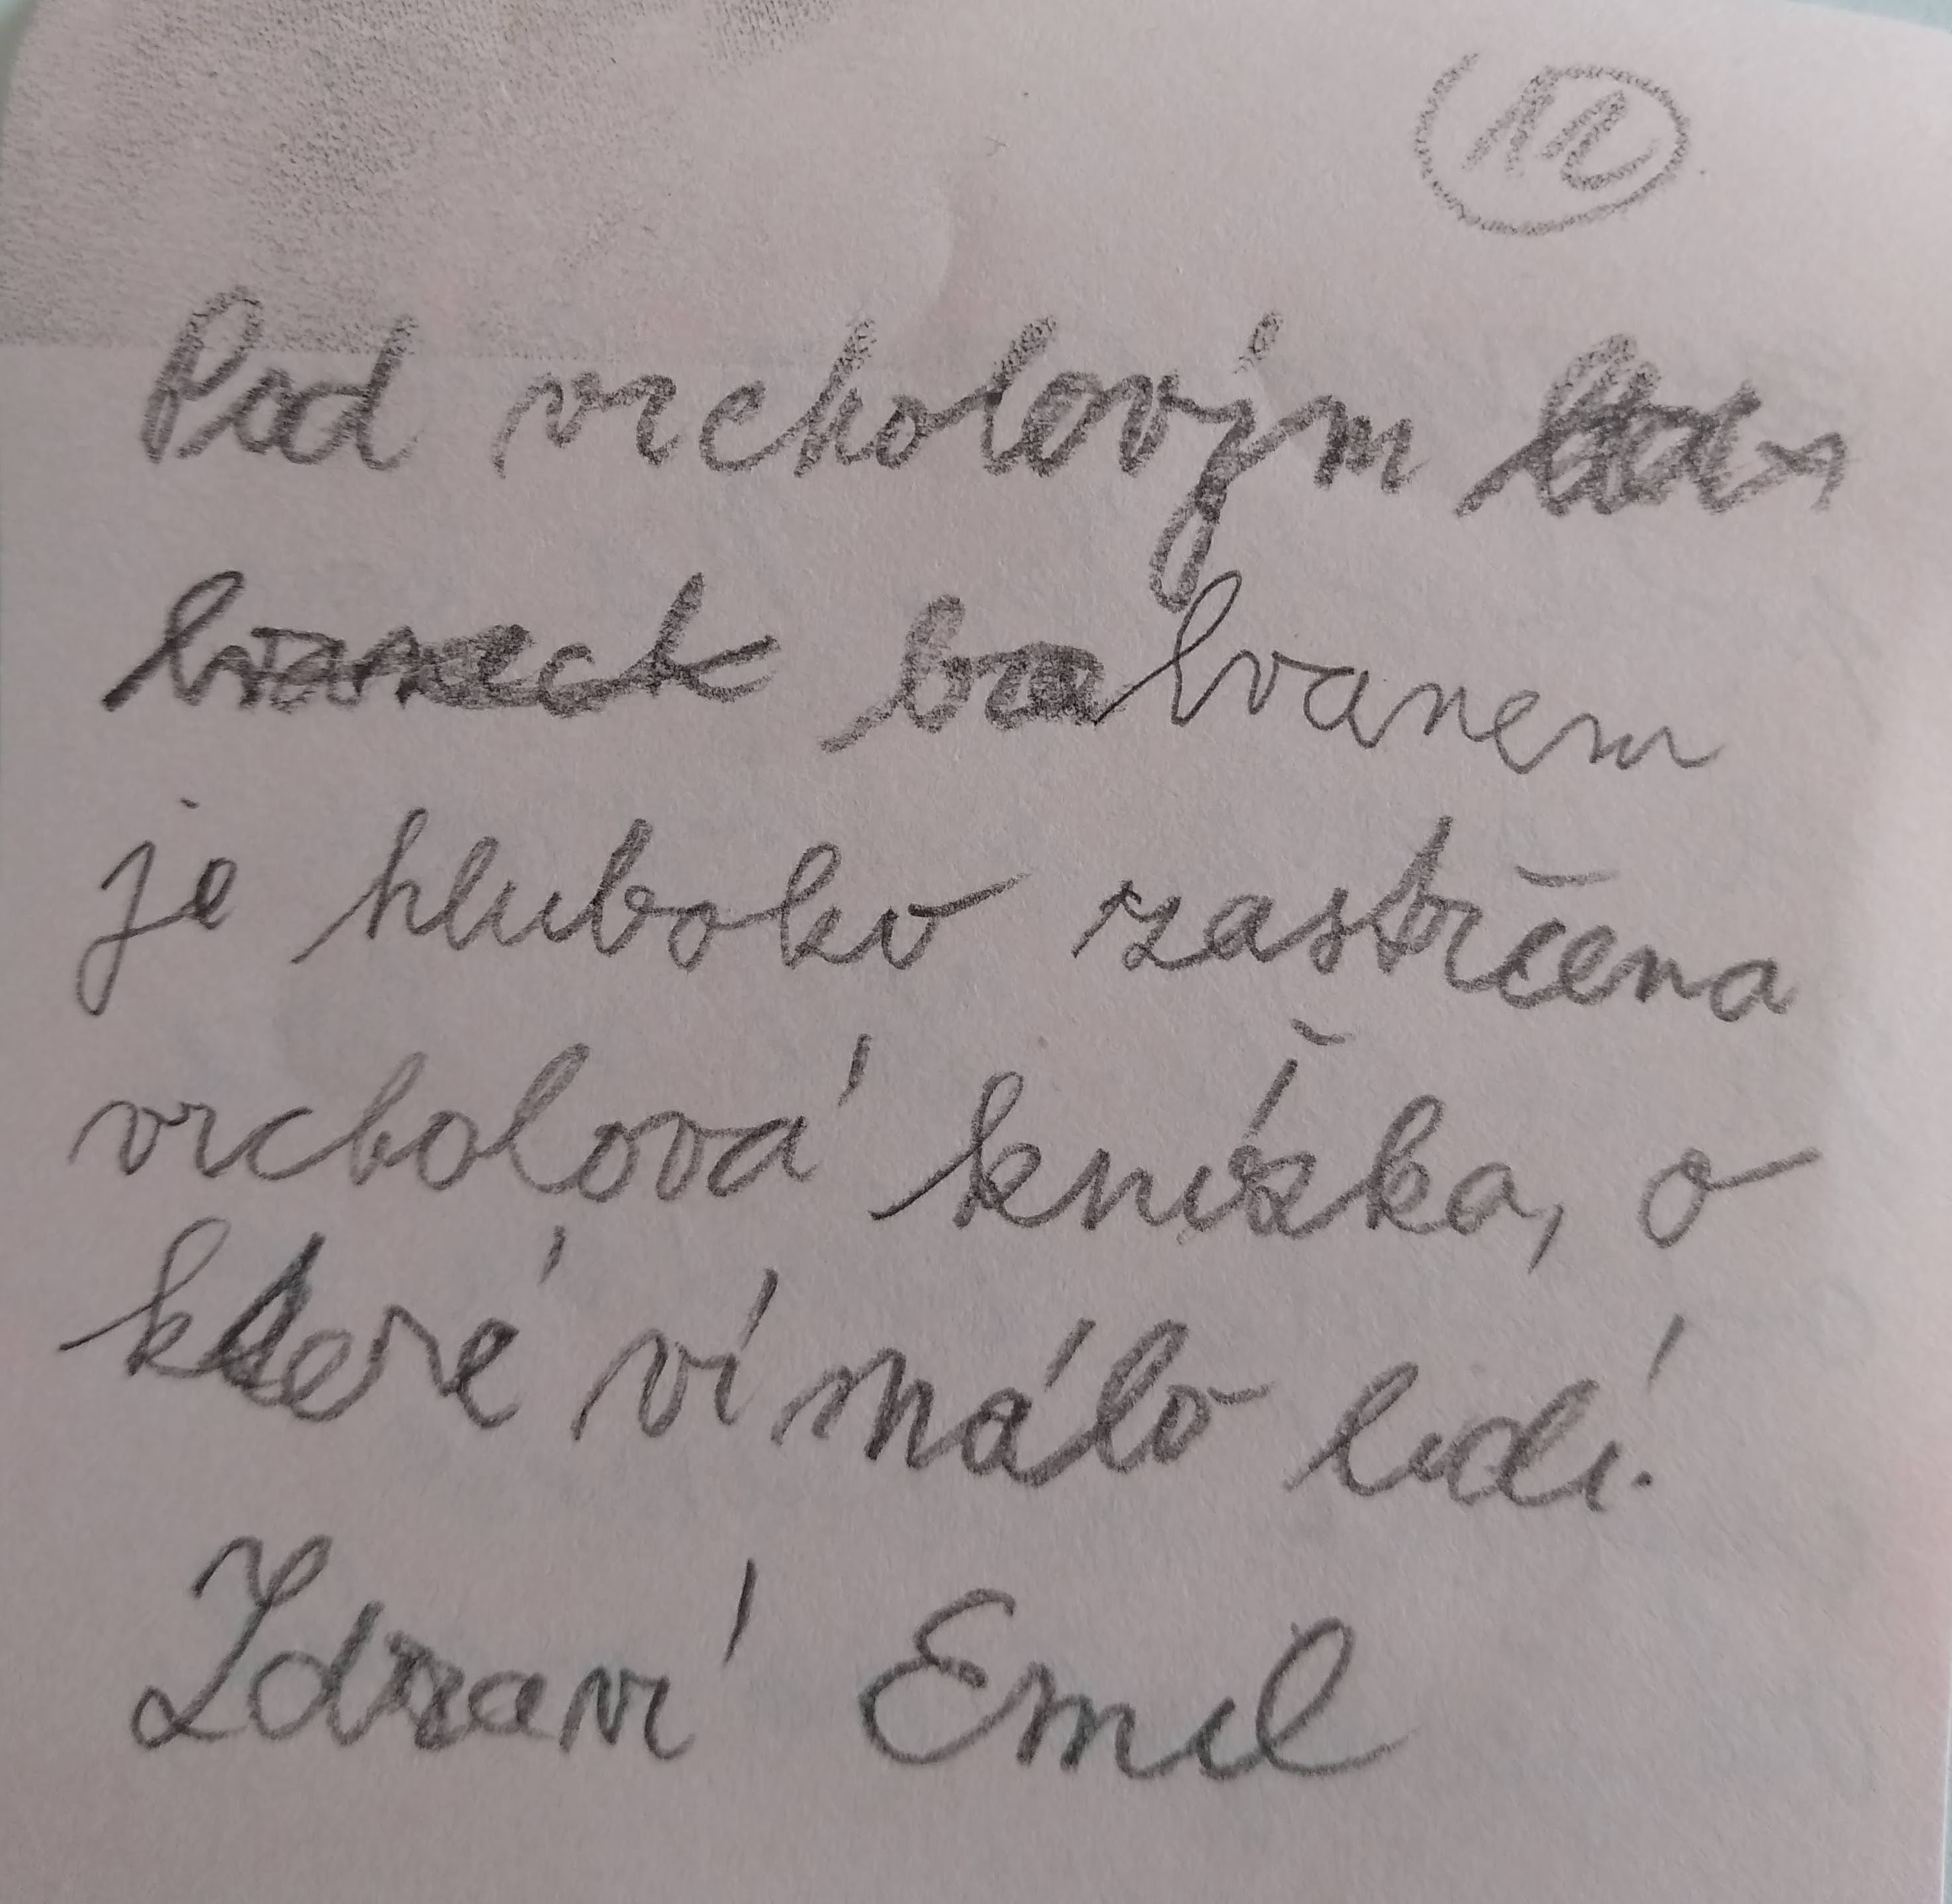 12
Pod vrcholovým
balvanem
je hluboko zastrčena
vrcholová knížka, o
které ví málo lidí.
Zdraví Emil